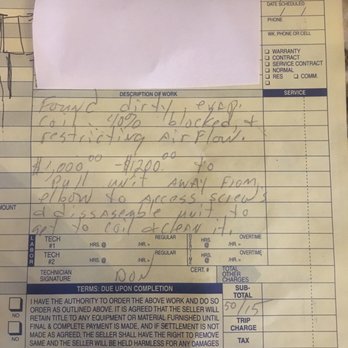 DATE SCHEDULED
PHONE
WK. PHONE OR CELL
WARRANTY
CONTRACT
SERVICE CONTRACT
NORMAL
RES COMM.
DESCRIPTION OF WORK
SERVICE
Found dirty, evap.
coil. 40% blocked, &
restricting Air Flow.
$1,000.00 - $1200.00 to
Pull unit away from,
elbow to access screws
& dissasemble unit, to
get to coil & clean it.
MOUNT
LABOR
TECH #1 HRS. @ /HR. = REGULAR HRS @ /HR. = OVERTIME
TECH #2 HRS. @ /HR. = REGULAR HRS @ /HR. = OVERTIME
TECHNICIAN SIGNATURE DON CERT. # TOTAL OTHER CHARGES
TERMS: DUE UPON COMPLETION
SUB-TOTAL
TRIP CHARGE
TAX
NO
NO
I HAVE THE AUTHORITY TO ORDER THE ABOVE WORK AND DO SO
ORDER AS OUTLINED ABOVE. IT IS AGREED THAT THE SELLER WILL
RETAIN TITLE TO ANY EQUIPMENT OR MATERIAL FURNISHED UNTIL
FINAL & COMPLETE PAYMENT IS MADE, AND IF SETTLEMENT IS NOT
MADE AS AGREED, THE SELLER SHALL HAVE THE RIGHT TO REMOVE
SAME AND THE SELLER WILL BE HELD HARMLESS FOR ANY DAMAGES